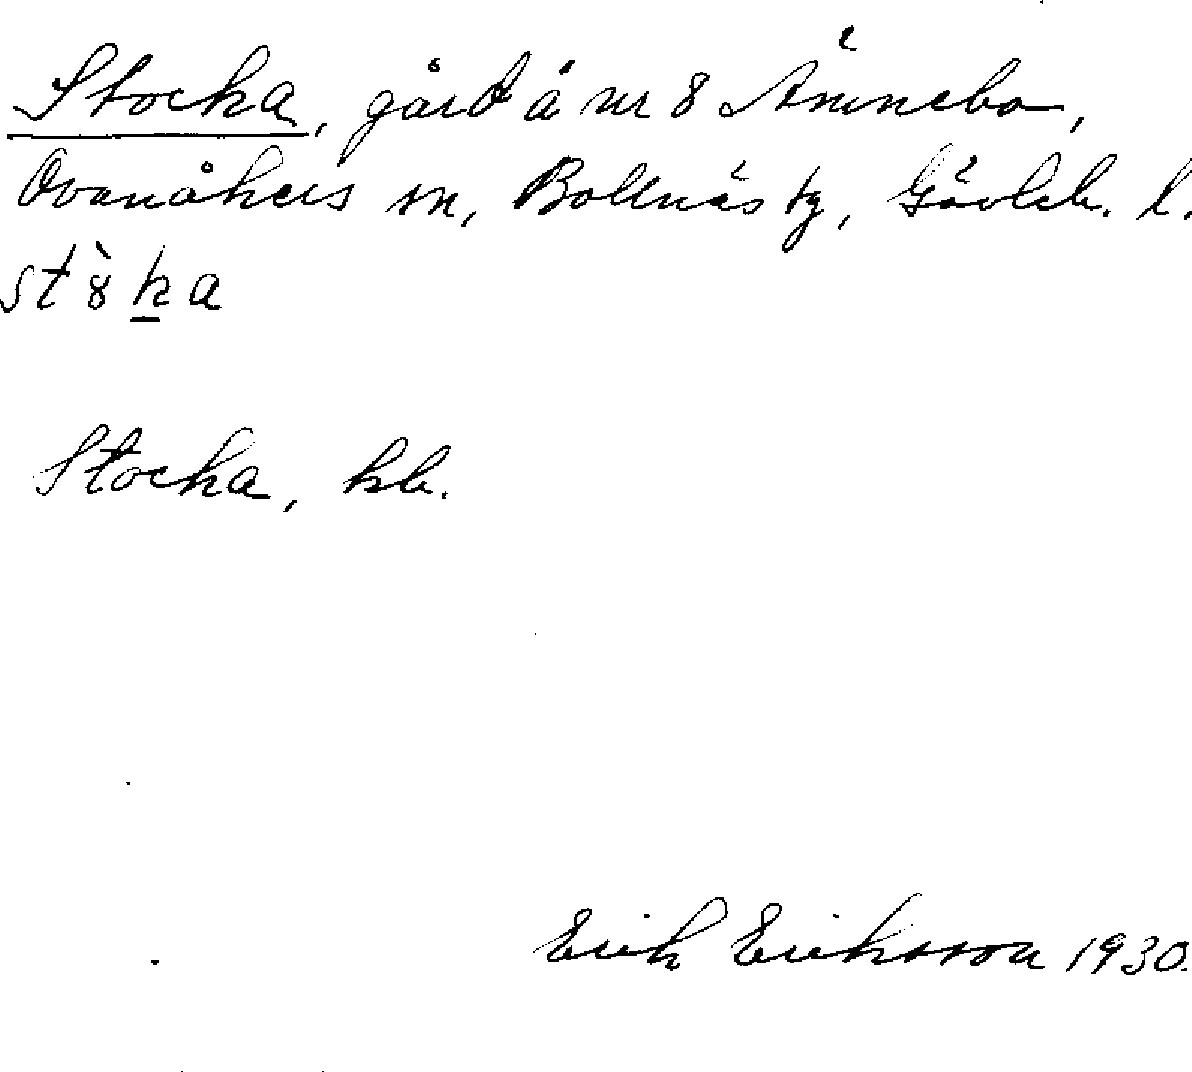 Stocka, gård å nr 8 Ämnebo,
Ovanåkers sn, Bollnäs tg, Gävleb. l.
Stocka, kb.
Erik Eriksson 1930.